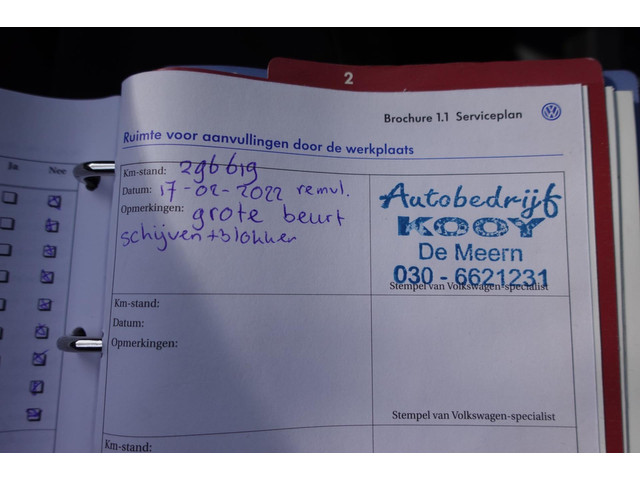 2
Brochure 1.1 Serviceplan
Ruimte voor aanvullingen door de werkplaats
Ja Nee
Km-stand: 296619
Datum: 17-02-2022 remvl.
Opmerkingen: grote beurt
schijven + blokken
Autobedrijf
KOOY
De Meern
030 - 6621231
Stempel van Volkswagen-specialist
Km-stand:
Datum:
Opmerkingen:
Stempel van Volkswagen-specialist
Km-stand: